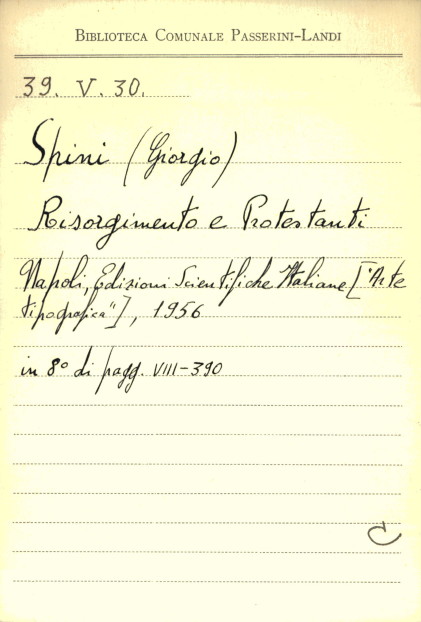 BIBLIOTECA COMUNALE PASSERINI-LANDI
39. V. 30.
Spini (Giorgio)
Risorgimento e Protestanti
Napoli, Edizioni Scientifiche Italiane ["Arte
tipografica"], 1956
in 8° di pagg. VIII-390
C